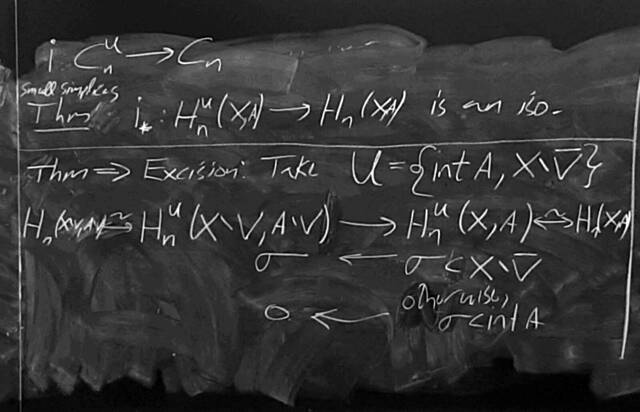 i: C_n^U → C_n
small simplices
Thm: i_*: H_n^U(X,A) → H_n(X,A) is an iso.
Thm ⇒ Excision: Take U = {int A, X∖V̄}
H_n(X∖V,A∖V) ≅ H_n^U(X∖V, A∖V) → H_n^U(X,A) ≅ H_n(X,A)
σ ← σ ⊂ X∖V̄
0 ← otherwise, σ ⊂ int A